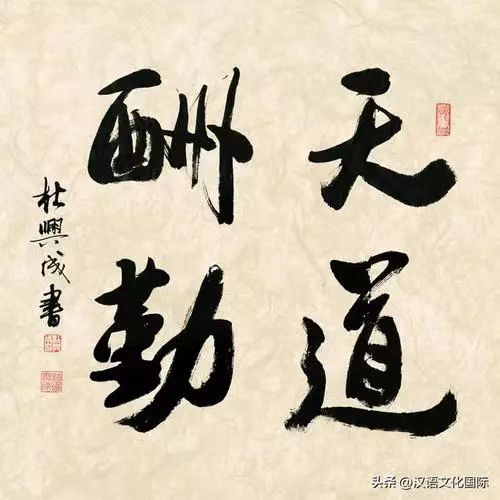 天道
酬勤
杜興成書
头条@汉语文化国际